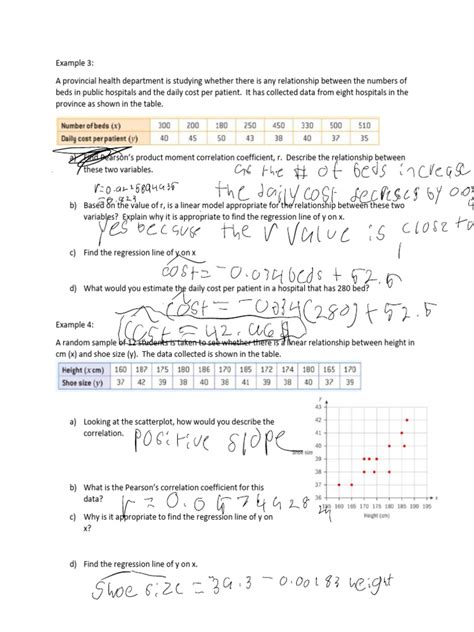 Example 3:
A provincial health department is studying whether there is any relationship between the numbers of
beds in public hospitals and the daily cost per patient. It has collected data from eight hospitals in the
province as shown in the table.
Number of beds (x) 300 200 180 250 450 330 500 510
Daily cost per patient (y) 40 45 50 43 38 40 37 35
a) Find Pearson's product moment correlation coefficient, r. Describe the relationship between
these two variables.
as the # of beds increase
the daily cost decreses by
b) Based on the value of r, is a linear model appropriate for the relationship between these two
variables? Explain why it is appropriate to find the regression line of y on x.
yes because the r value is close to
1
c) Find the regression line of y on x
cost = -0.034beds + 52.5
d) What would you estimate the daily cost per patient in a hospital that has 280 bed?
cost = -0034(280) + 52.5
Cost = 42.
Example 4:
A random sample of 12 students is taken to see whether there is a linear relationship between height in
cm (x) and shoe size (y). The data collected is shown in the table.
Height (x cm) 160 187 175 180 186 170 185 172 174 180 165 170
Shoe size (y) 37 42 39 38 40 38 41 39 38 40 37 39
a) Looking at the scatterplot, how would you describe the
correlation.
positive slope
y
43
42
41
40
39
38
37
36
Shoe size
160 165 170 175 180 185 190 195
x
Height (cm)
b) What is the Pearson's correlation coefficient for this
data?
c) Why is it appropriate to find the regression line of y on
x?
d) Find the regression line of y on x.
Shoe size = 39.3 - 0.00183 height